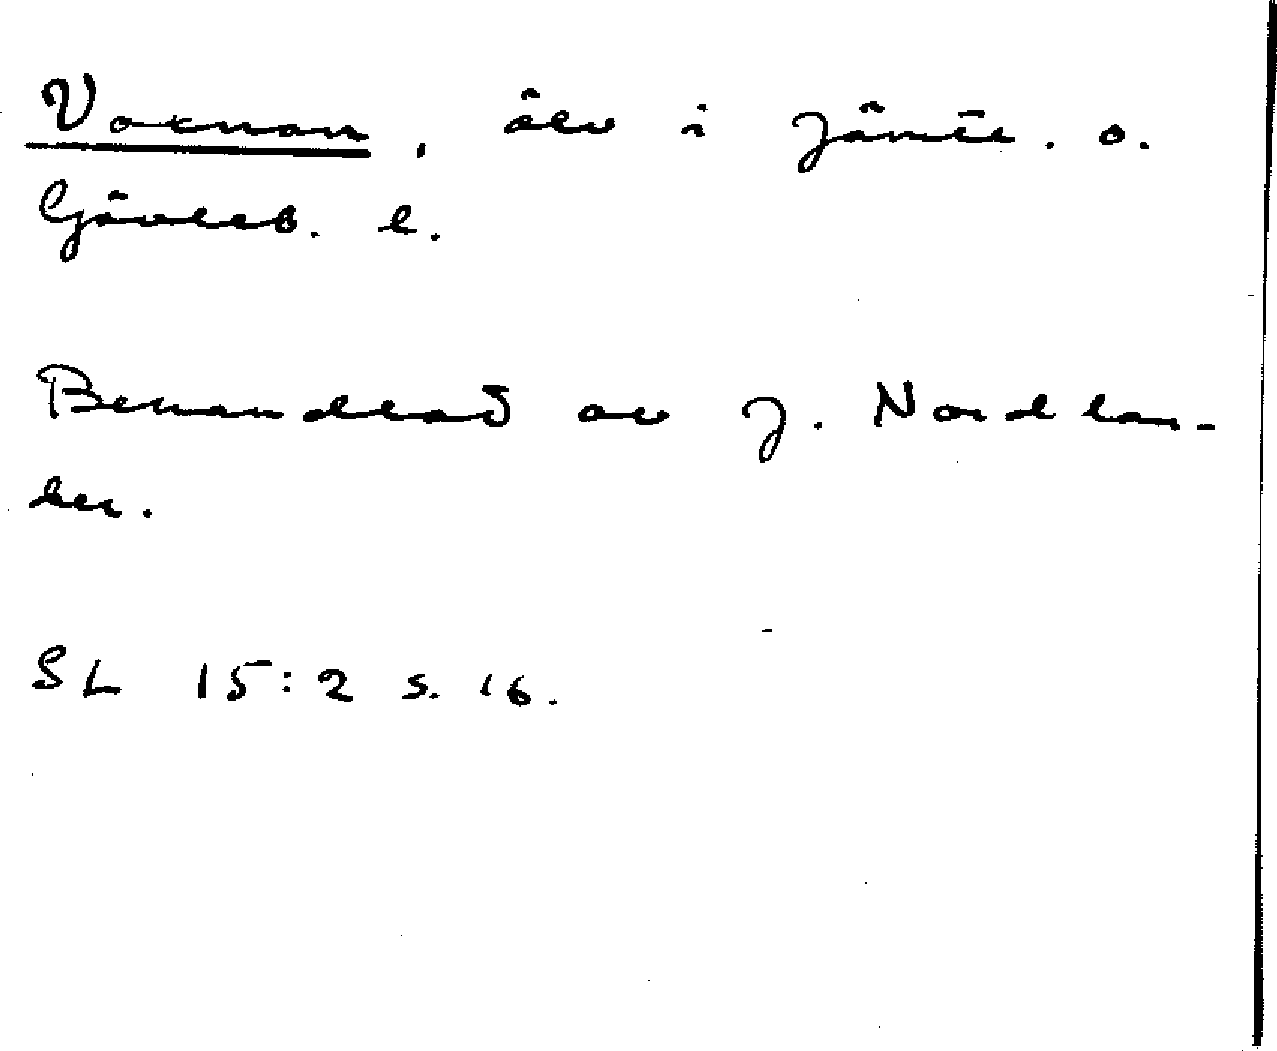 Voxnan, älv i Jämtl. o.
Gävleb. l.
Behandlad av J. Nordlan-
der.
SL 15:2 s. 16.